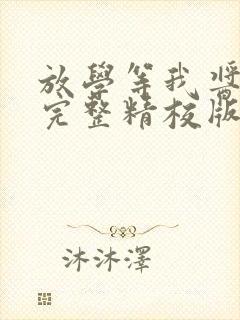 放學等我 醬
完整精校版
沐沐澤